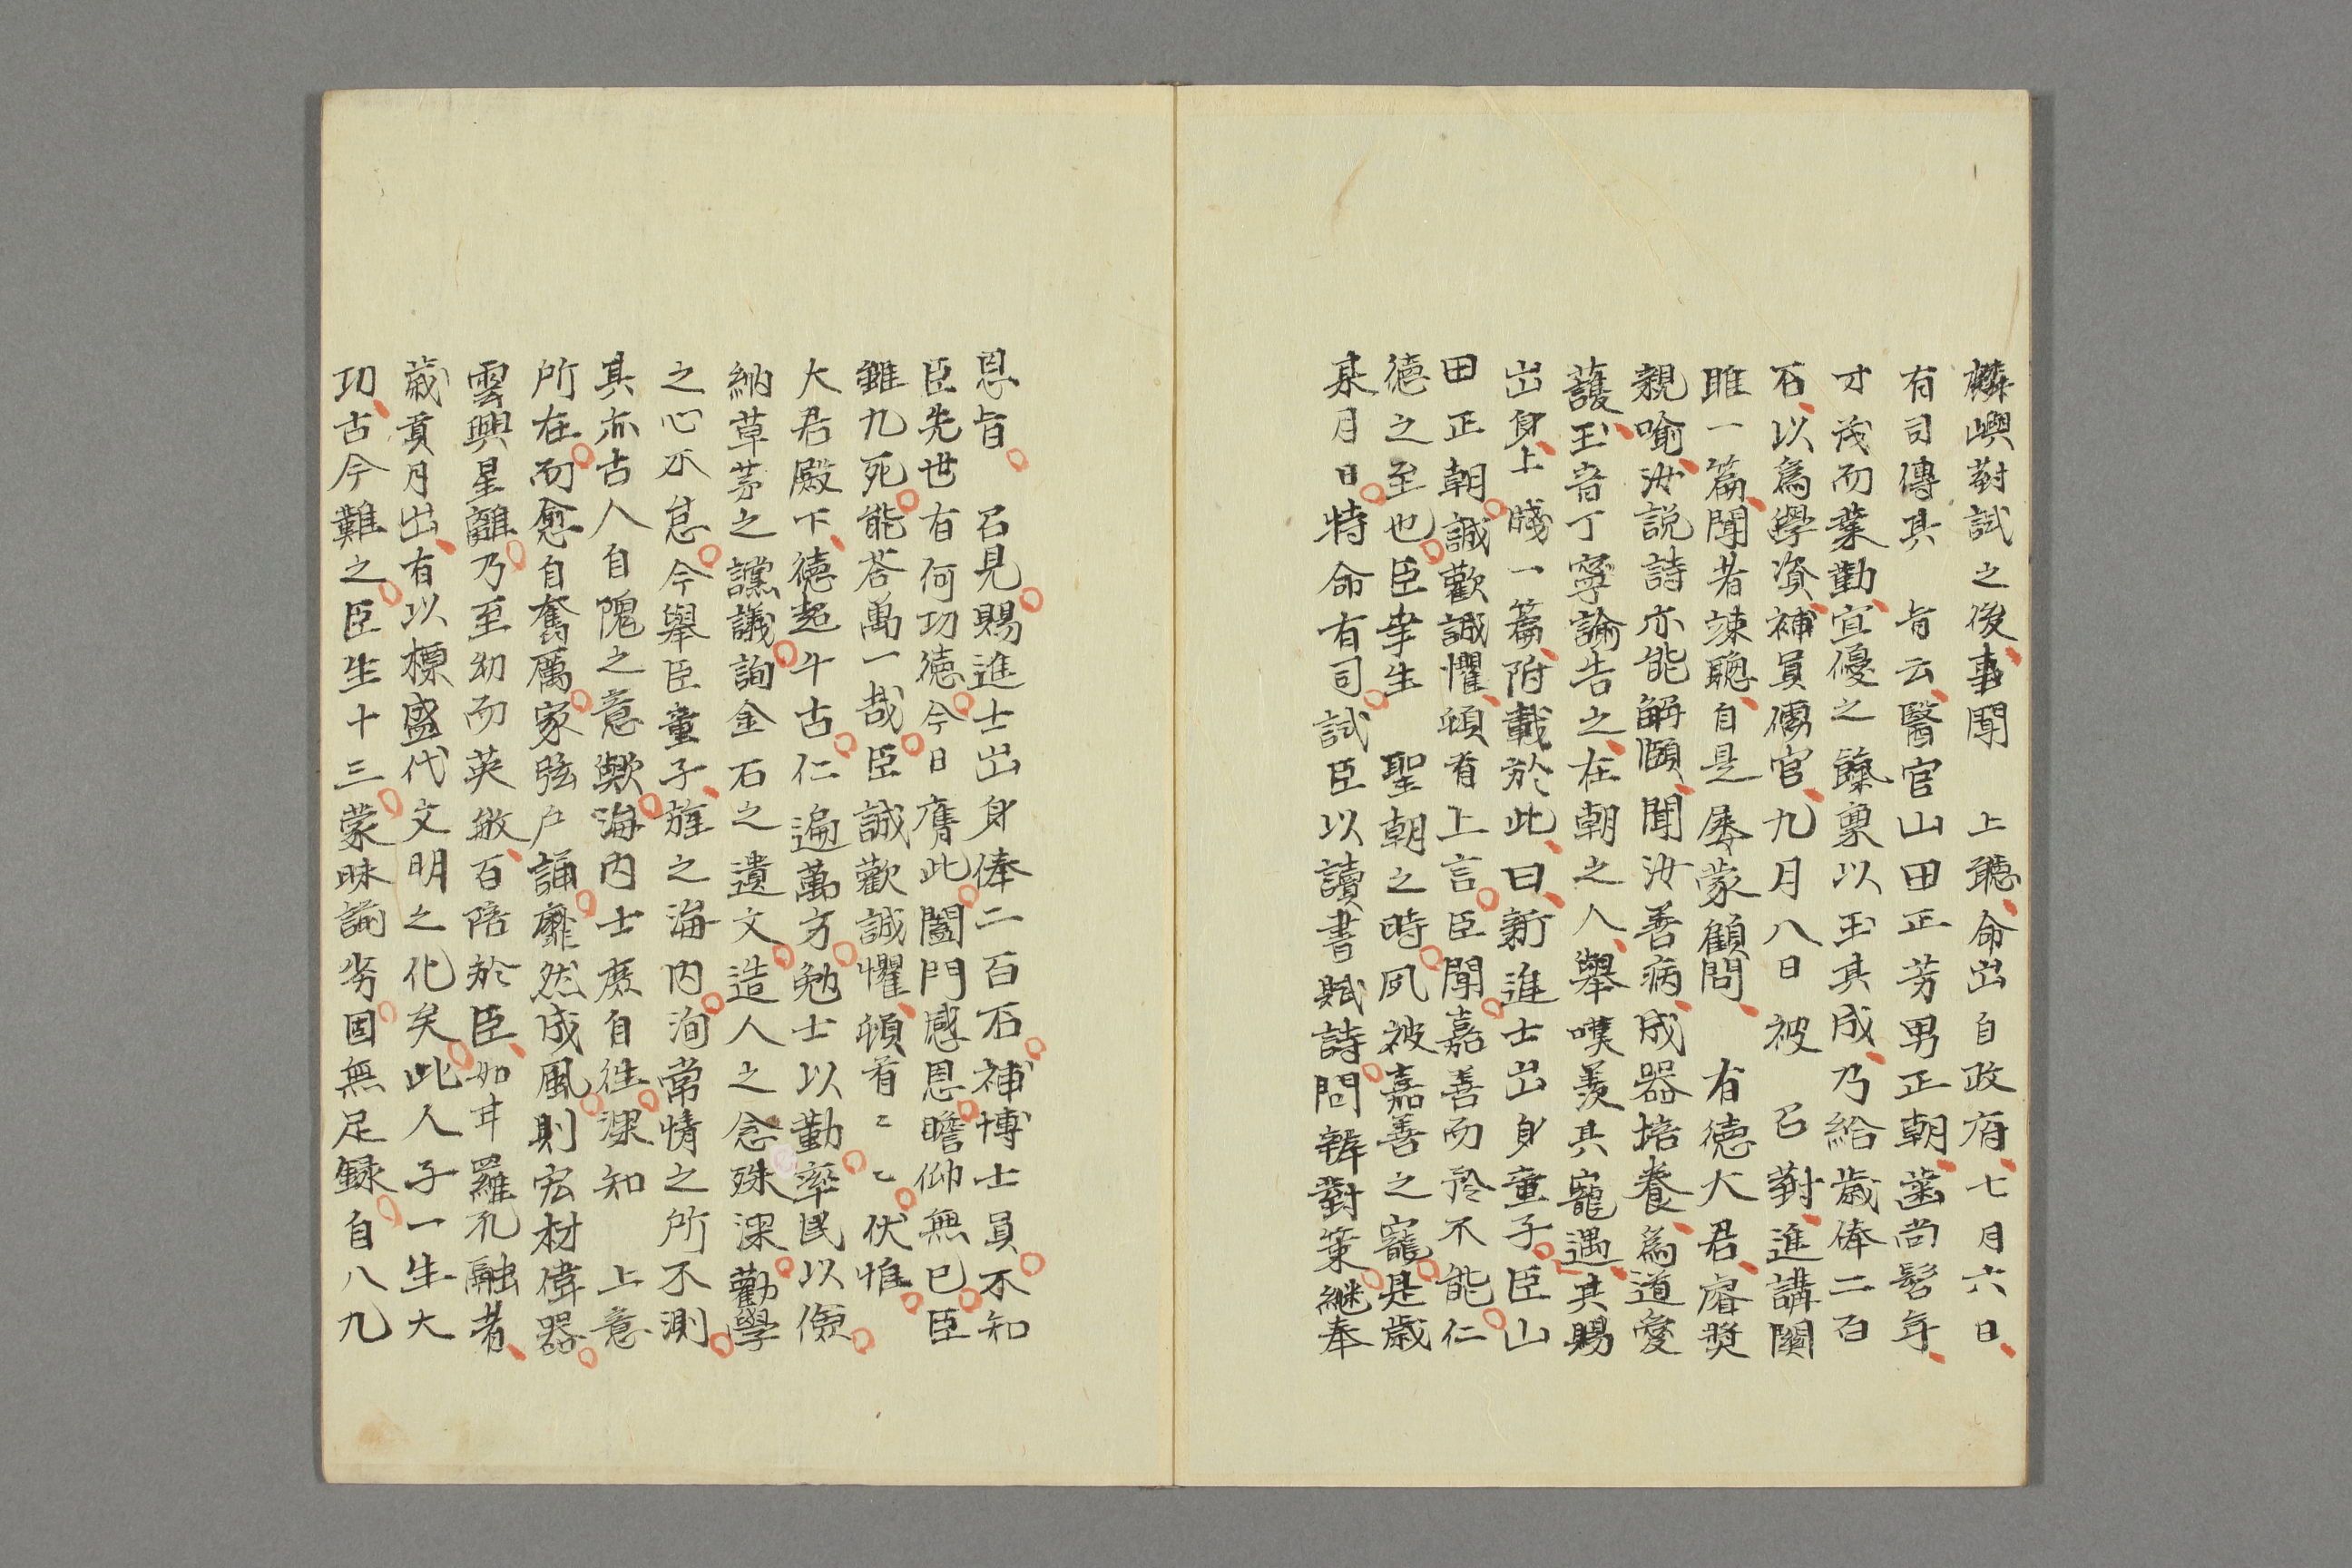 麟嶼對試之後事聞　上聽命出自政府七月六日
有司傳其　旨云醫官山田正芳男正朝齒尚髫年
才茂而業勤宜優之餼稟以玉其成乃給歲俸二百
石以爲學資補員儒官九月八日　被　召對進講關
雎一篇聞者竦聽自是屡蒙顧問　有德大君睿奬
親喻汝説詩亦能解頤聞汝善病成器培養爲道愛
護玉音丁寧諭告之在朝之人舉嘆羨其寵遇其賜
出身上牋一篇附載於此曰新進士出身童子臣山
田正朝誠歡誠懼頓首上言臣聞嘉善而矜不能仁
德之至也臣幸生　聖朝之時夙被嘉善之寵是歲
某月日特命有司試臣以讀書賦詩問辨對策継奉
恩旨　召見賜進士出身俸二百石補博士員不知
臣先世有何功德今日膺此闔門感恩瞻仰無已臣
雖九死能答萬一哉臣誠歡誠懼頓首〻〻伏惟
大君殿下德超千古仁遍萬方勉士以勤率民以儉
納草茅之讜議詢金石之遺文造人之念殊深勸學
之心不怠今舉臣童子旌之海内洵常情之所不測
其亦古人自隗之意歟海内士庶自往深知　上意
所在而愈自奮厲家弦戸誦靡然成風則宏材偉器
雲興星離乃至幼而英敏百陪於臣如甘羅孔融者
歲貢月出有以標盛代文明之化矣此人子一生大
功古今難之臣生十三蒙昧謭劣固無足録自八九